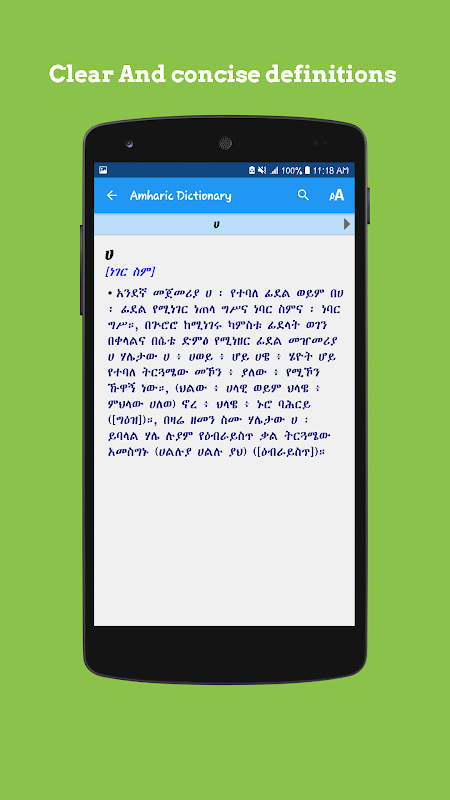 Clear And concise definitions
100% 11:18 AM
Amharic Dictionary
AA
ሀ
ሀ
[ነገር ስም]
• አንደኛ መጀመሪያ ሀ ፡ የተባለ ፊደል ወይም በሀ
፡ ፊደል የሚነገር ነጠላ ግሥና ነባር ስምና ፡ ነባር
ግሥ።, በጕሮሮ ከሚነገሩ ካምስቱ ፊደላት ወገን
በቀላልና በሴቱ ድምፅ የሚነዘር ፊደል መዠመሪያ
ሀ ሃሌታው ሀ ፥ ሀወይ ፥ ሆይ ሀዌ ፥ ሄዮት ሆይ
የተባለ ትርጓሜው መኾን ፥ ያለው ፥ የሚኾን
ኹዋኝ ነው።, (ህልው ፥ ሀላዊ ወይም ህላዌ ፥
ምህላው ሀለወ) ኖረ ፥ ህላዌ ፥ ኑሮ ባሕርይ
([ግዕዝ])።, በዛሬ ዘመን ስሙ ሃሌታው ሀ ፡
ይባላል ሃሌ ሉያም የዕብራይስጥ ቃል ትርጓሜው
አመስግኑ (ሀልሉያ ሀልሉ ያህ) ([ዕብራይስጥ])።